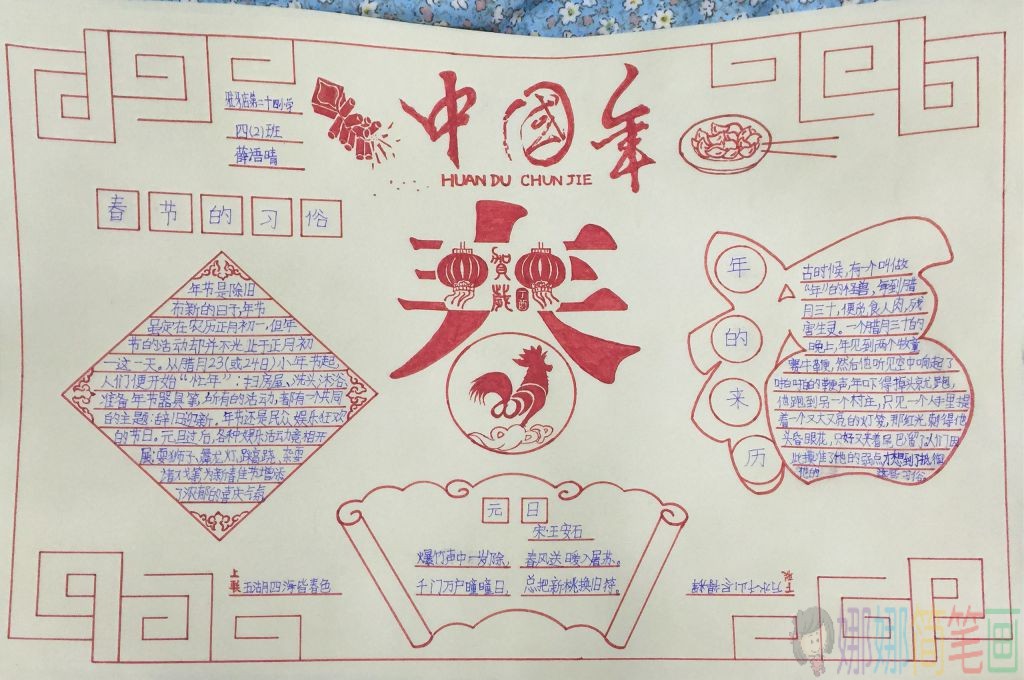 驻马店第二十四小学
四(2)班
薛语晴
中国年
HUAN DU CHUN JIE
春节的习俗
年节是除旧
布新的日子,年节
虽定在农历正月初一,但年
节的活动却并不光止于正月初
一这一天。从腊月23(或24日)小年节起,
人们便开始“忙年”:扫房屋、洗头沐浴、
准备年节器具等,所有的活动,都有一个共同
的主题:辞旧迎新。年节还是民众娱乐狂欢
的节日。元旦过后,各种娱乐活动竟相开
展:耍狮子、舞龙灯、踩高跷、杂耍
诸戏等,为新春佳节增添
了浓郁的喜庆气氛
春
贺岁
丁酉
年的来历
古时候,有一个叫做
“年”的怪兽,每到腊
月三十,便
食人肉,残
害生灵。一个腊月三十的
晚上,年见到两个牧童
牛鞭,然后但听见空中响起了
啪啪的鞭声,年吓得掉头就跑,
他跑到另一个村庄,只见一个人手里提
着一个又大又亮的灯笼,那红光刺得他
头昏眼花,只好又夹着尾巴溜了。人们由
此摸准了他的弱点,才想到了抵御
他的
这些习俗。
元日
宋·王安石
爆竹声中一岁除,春风送暖入屠苏。
千门万户瞳瞳日,总把新桃换旧符。
上联
五湖四海皆春色
下联
万水千山
娜娜简笔画